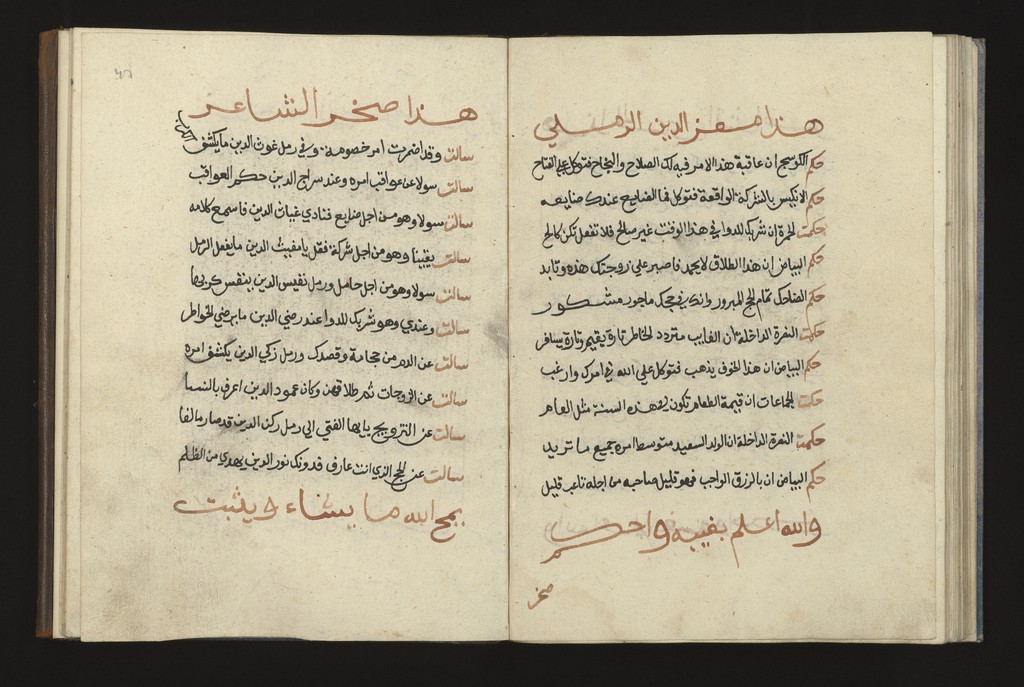 هذا معز الدين الرملي
حكم الكوسج ان عاقبة هذا الامر فيه لك الصلاح والنجاح فتوكل على الفتاح
حكم الانكيس بالشركة الواقعة فتوكل فما الضايع عندك ضايعه
حكمت الحمرة ان شريك للدوا في هذا الوقت غير صالح فلا تفعل تكن كالح
حكم البياض ان هذا الطلاق لا يحمد فاصبر على زوجتك هذه وتابد
حكم الضاحك تمام الحج المبرور وانك في حجك ماجور مشكور
حكمت النقرة الداخلة ان الغايب متردد الخاطر تارة يقيم وتارة يسافر
حكم البياض ان هذا الخوف يذهب فتوكل على الله في امرك وارغب
حكمت الجماعات ان قيمة الطعام تكون في هذه السنة مثل العام
حكمت النقرة الداخلة ان الولد السعيد متوسط امره جميع ما تريد
حكم البياض ان بالرزق الواجب فهو قليل صاحبه من اجله تاعب قليل
والله اعلم بغيبه واحكم
صخر
هذا صخر الشاعر
سالت وقد اضمرت امر خصومة وفي رمل غوث الدين ما يكشف
سالت سولا عن عواقب امره وعند سراج الدين حكم العواقب
سالت سولا وهو من اجل ضايع فنادي غياث الدين فاسمع كلامه
سالت يقينا وهو من اجل شركة فقل يا مغيث الدين ما يفعل الرمل
سالت سولا وهو من اجل حامل ورمل نفيس الدين ينفس كربها
سالت وعندي وهو شريك للدوا عند رضي الدين ما يرضي الخواطر
سالت عن الدم من حجامة وقصدك ورمل زكي الدين يكشف امره
سالت عن الزوجات ثم طلاقهن وكان عمود الدين اعرف بالنسا
سالت عن التزويج يايها الفتي الي رمل ركن الدين قد صار مالفا
سالت عن الحج الذي انت عارف فدونك نور الدين يهدي من الظلم
يمح الله ما يشاء ويثبت